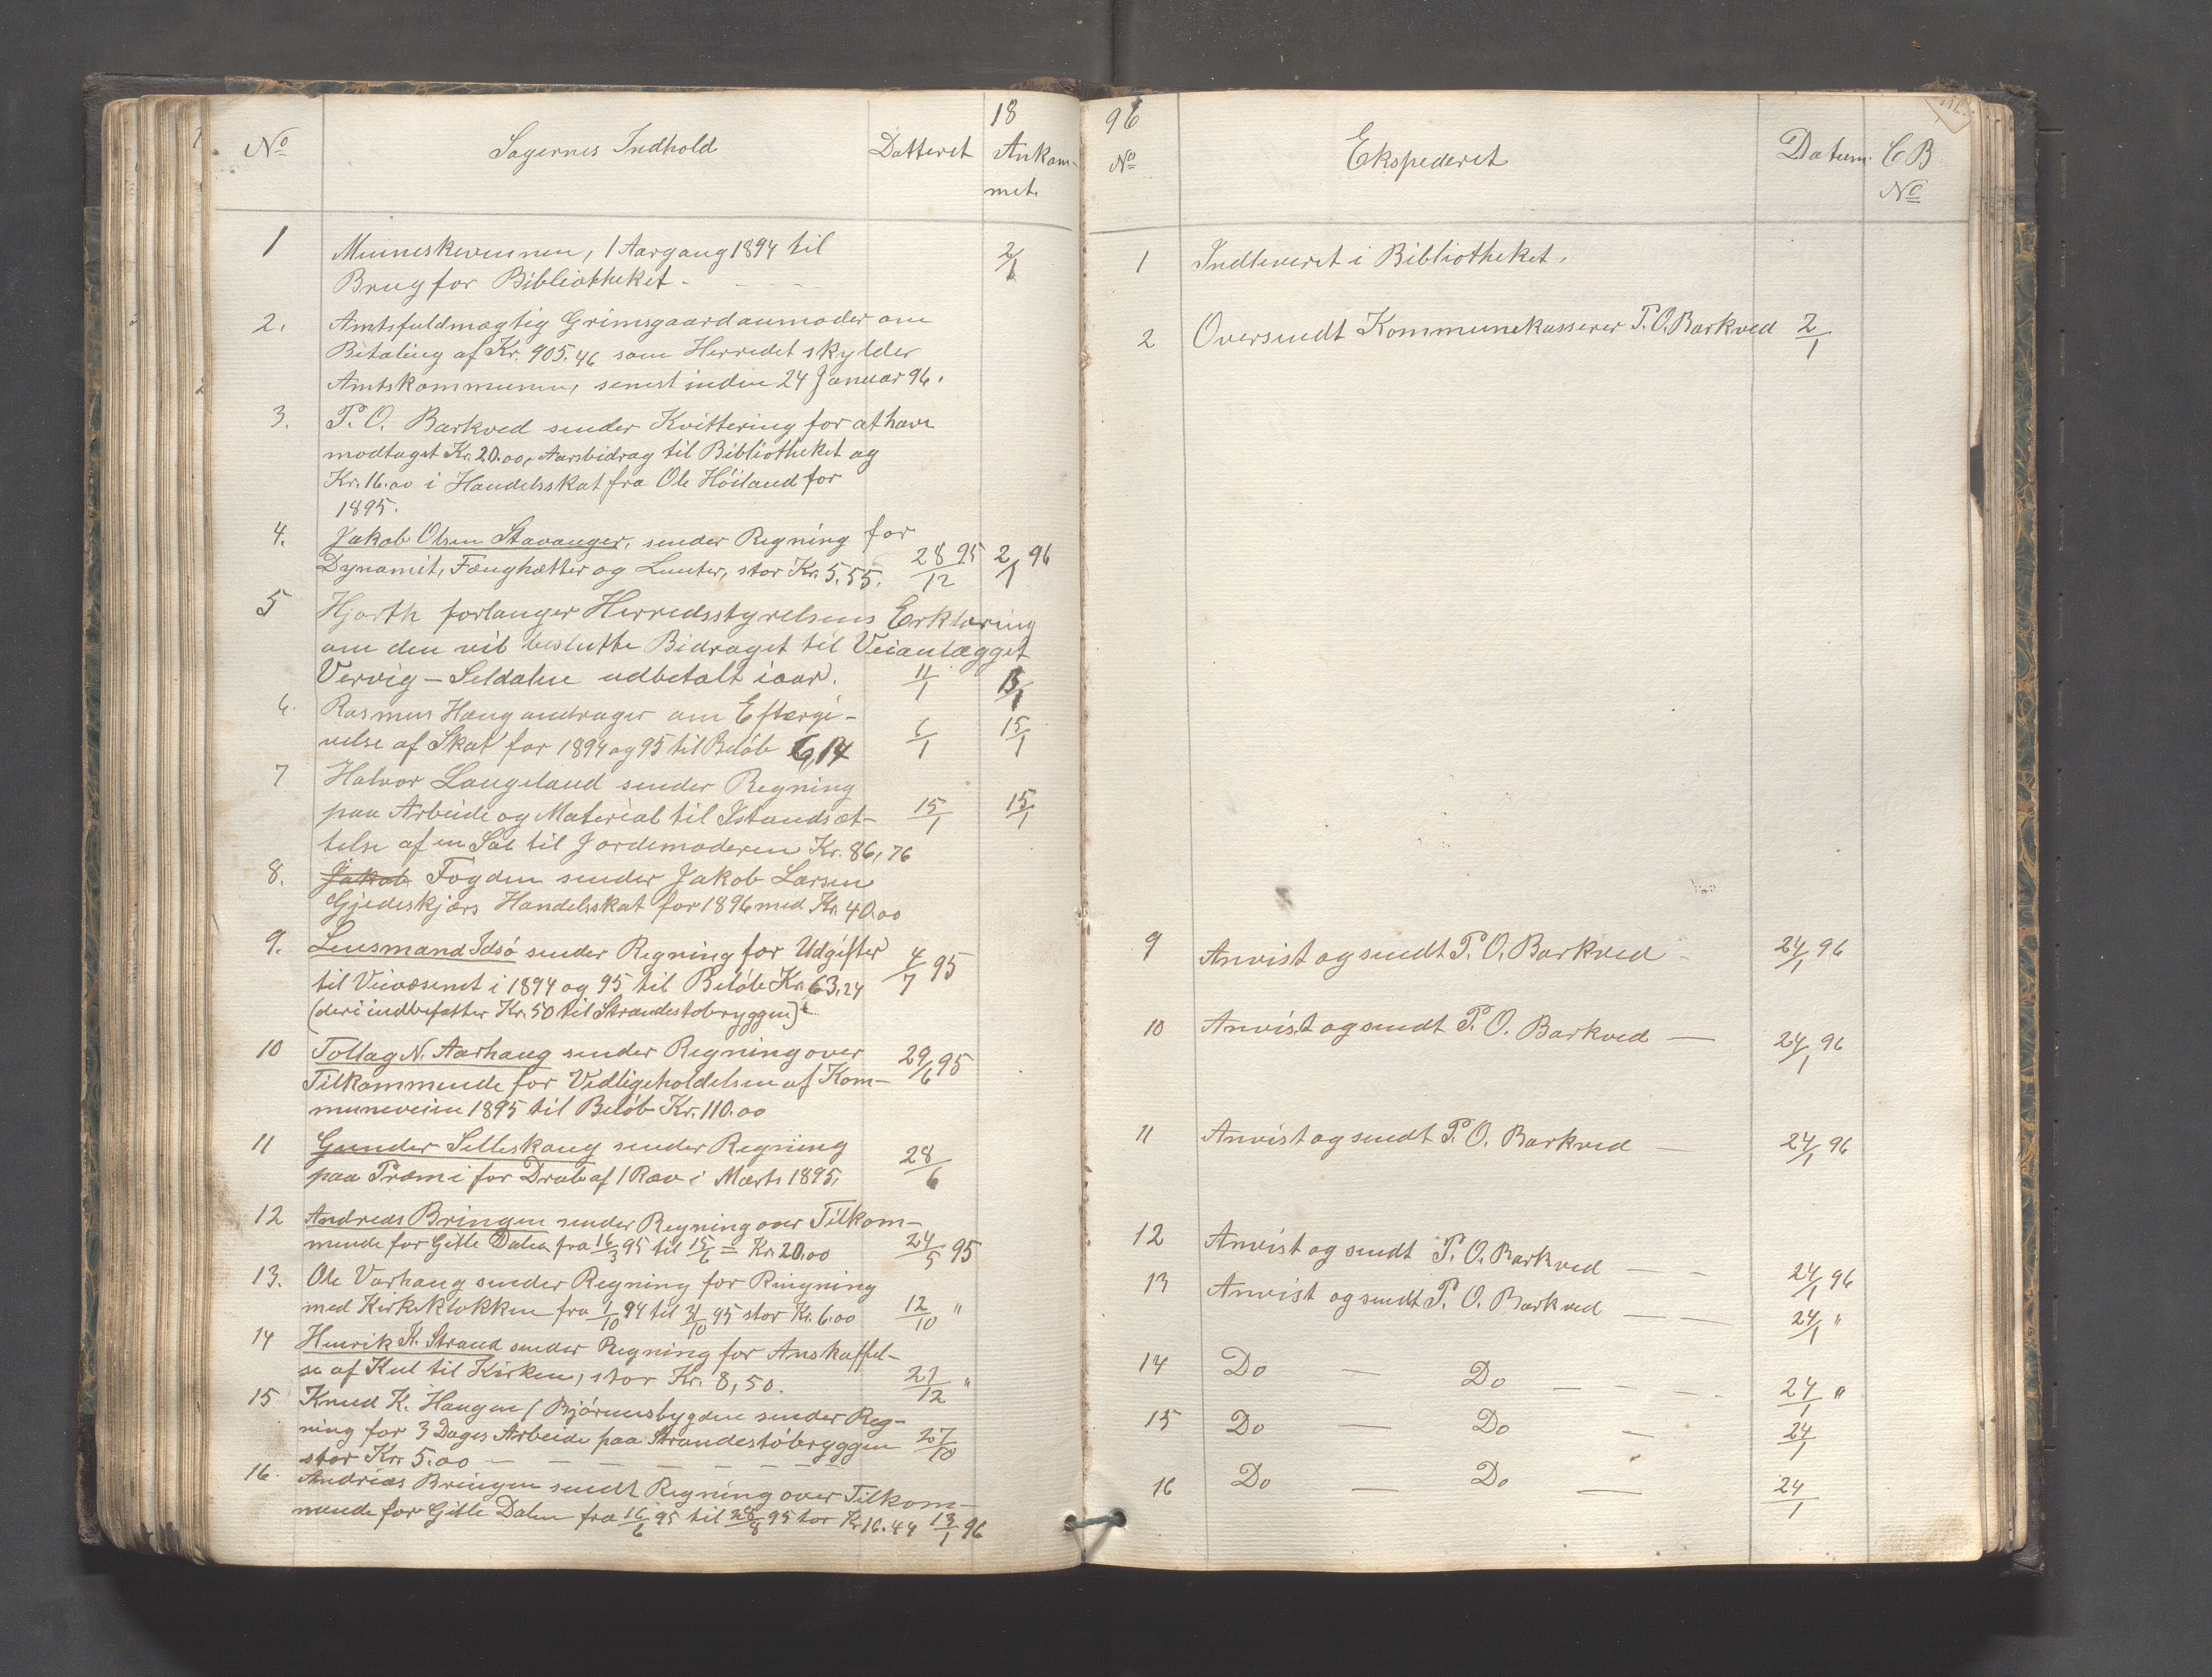 18
No
Sagernes Indhold
Datteret
Ankom-
met.
1
Menneskevennen, 1 Aargang 1894 til
2/1
Brug for Bibliotheket.
2.
Amtsfuldmægtig Grimsgaard anmoder om
Betaling af Kr. 905.46 som Herredet skylder
Amtskommunen, senest inden 24 Januar 96.
3.
T. O. Barkved sender Kvittering for at have
modtaget Kr. 20.00, Aarsbidrag til Bibliotheket og
Kr. 16.00 i Handelsskat fra Ole Höiland for
1895.
4.
Jakob Olsen Stavanger, sender Regning for
Dynamit, Fænghætter og Lunter, stor Kr. 5.55.
28/12 95
2/1 96
5
Hjorth forlanger Herredsstyrelsens Erklæring
om den vil beslutte Bidraget til Veianlægget
Vervig - Seldalen udbetalt iaar.
11/1
13/1
6.
Rasmus Haug andrager om Eftergi-
velse af Skat for 1894 og 95 til Beløb 6,14
6/1
15/1
7
Halvor Langeland sender Regning
paa Arbeide og Material til Istandsæt-
15/1
15/1
telse af en Sal til Jordemoderen Kr. 86,76
8.
Jakob Fogden sender Jakob Larsen
Gjedeskjærs Handelsskat for 1896 med Kr. 40.00
9.
Lensmand Idsö sender Regning for Udgifter
4/7 95
til Veivæsenet i 1894 og 95 til Beløb Kr. 63.24
(deri indbefatter Kr. 50 til Strandestöbryggen)
10
Tollag N. Aarhaug sender Regning over
29/6 95
Tilkommende for Vedligeholdelsen af Kom-
muneveien 1895 til Beløb Kr. 110.00
11
Gunder Selleskaug sender Regning
28/6
paa Præmi for Drab af 1 Ræv i Marts 1895.
12
Andreas Bringen sender Regning over Tilkom-
mende for Gitle Dalen fra 16/3 95 til 15/6 = Kr. 20.00
24/5 95
13.
Ole Varhaug sender Regning for Ringning
med Kirkeklokken fra 1/10 94 til 1/10 95 stor Kr. 6.00
12/10 "
14
Henrik T. Strand sender Regning for Anskaffel-
se af Kul til Kirken, stor Kr. 8,50.
21/12 "
15
Knud K. Haugen / Björensbygden sender Reg-
ning for 3 Dages Arbeide paa Strandestöbryggen
27/10
stor Kr. 5.00
16.
Andreas Bringen sendt Regning over Tilkom-
mende for Gitle Dalen fra 16/6 95 til 28/8 95 stor Kr. 16.44
13/1 96
96
No
Ekspederet
Datum.
C B
No
1
Indleveret i Bibliotheket.
2
Oversendt Kommunekasserer T. O. Barkved
2/1
9
Anvist og sendt T. O. Barkved
24/1 96
10
Anvist og sendt T. O. Barkved
24/1 96
11
Anvist og sendt T. O. Barkved
24/1 96
12
Anvist og sendt T. O. Barkved
24/1 96
13
Anvist og sendt T. O. Barkved
24/1 "
14
Do — Do
24/1 "
15
Do — Do
24/1
16
Do — Do
24/1